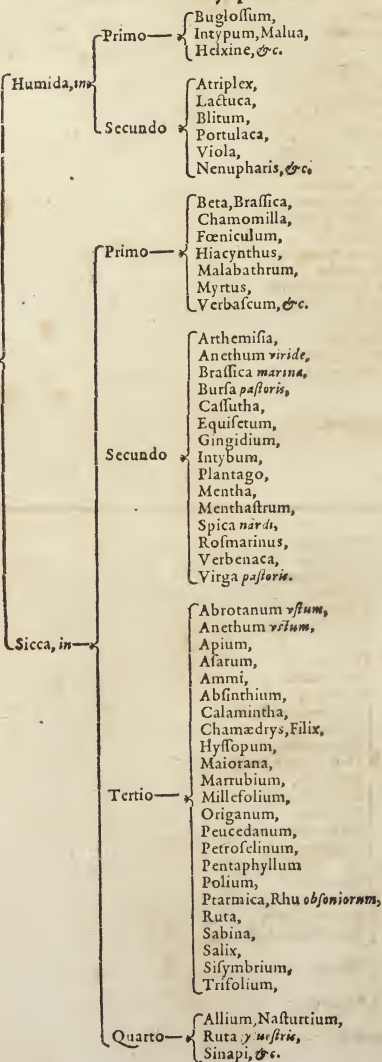 Humida, in
Primo
Buglossum,
Intypum, Malua,
Helxine, &c.
Secundo
Atriplex,
Lactuca,
Blitum,
Portulaca,
Viola,
Nenupharis, &c.
Sicca, in
Primo
Beta, Brassica,
Chamomilla,
Fœniculum,
Hiacynthus,
Malabathrum,
Myrtus,
Verbascum, &c.
Secundo
Arthemisia,
Anethum viride,
Brassica marina,
Bursa pastoris,
Cassutha,
Equisetum,
Gingidium,
Intybum,
Plantago,
Mentha,
Menthastrum,
Spica nardi,
Rosmarinus,
Verbenaca,
Virga pastoris.
Tertio
Abrotanum vstum,
Anethum vstum,
Apium,
Asarum,
Ammi,
Absinthium,
Calamintha,
Chamædrys, Filix,
Hyssopum,
Maiorana,
Marrubium,
Millefolium,
Origanum,
Peucedanum,
Petroselinum,
Pentaphyllum
Polium,
Ptarmica, Rhu obsoniorum,
Ruta,
Sabina,
Salix,
Sisymbrium,
Trifolium,
Quarto
Allium, Nasturtium,
Ruta
Sinapi, &c.